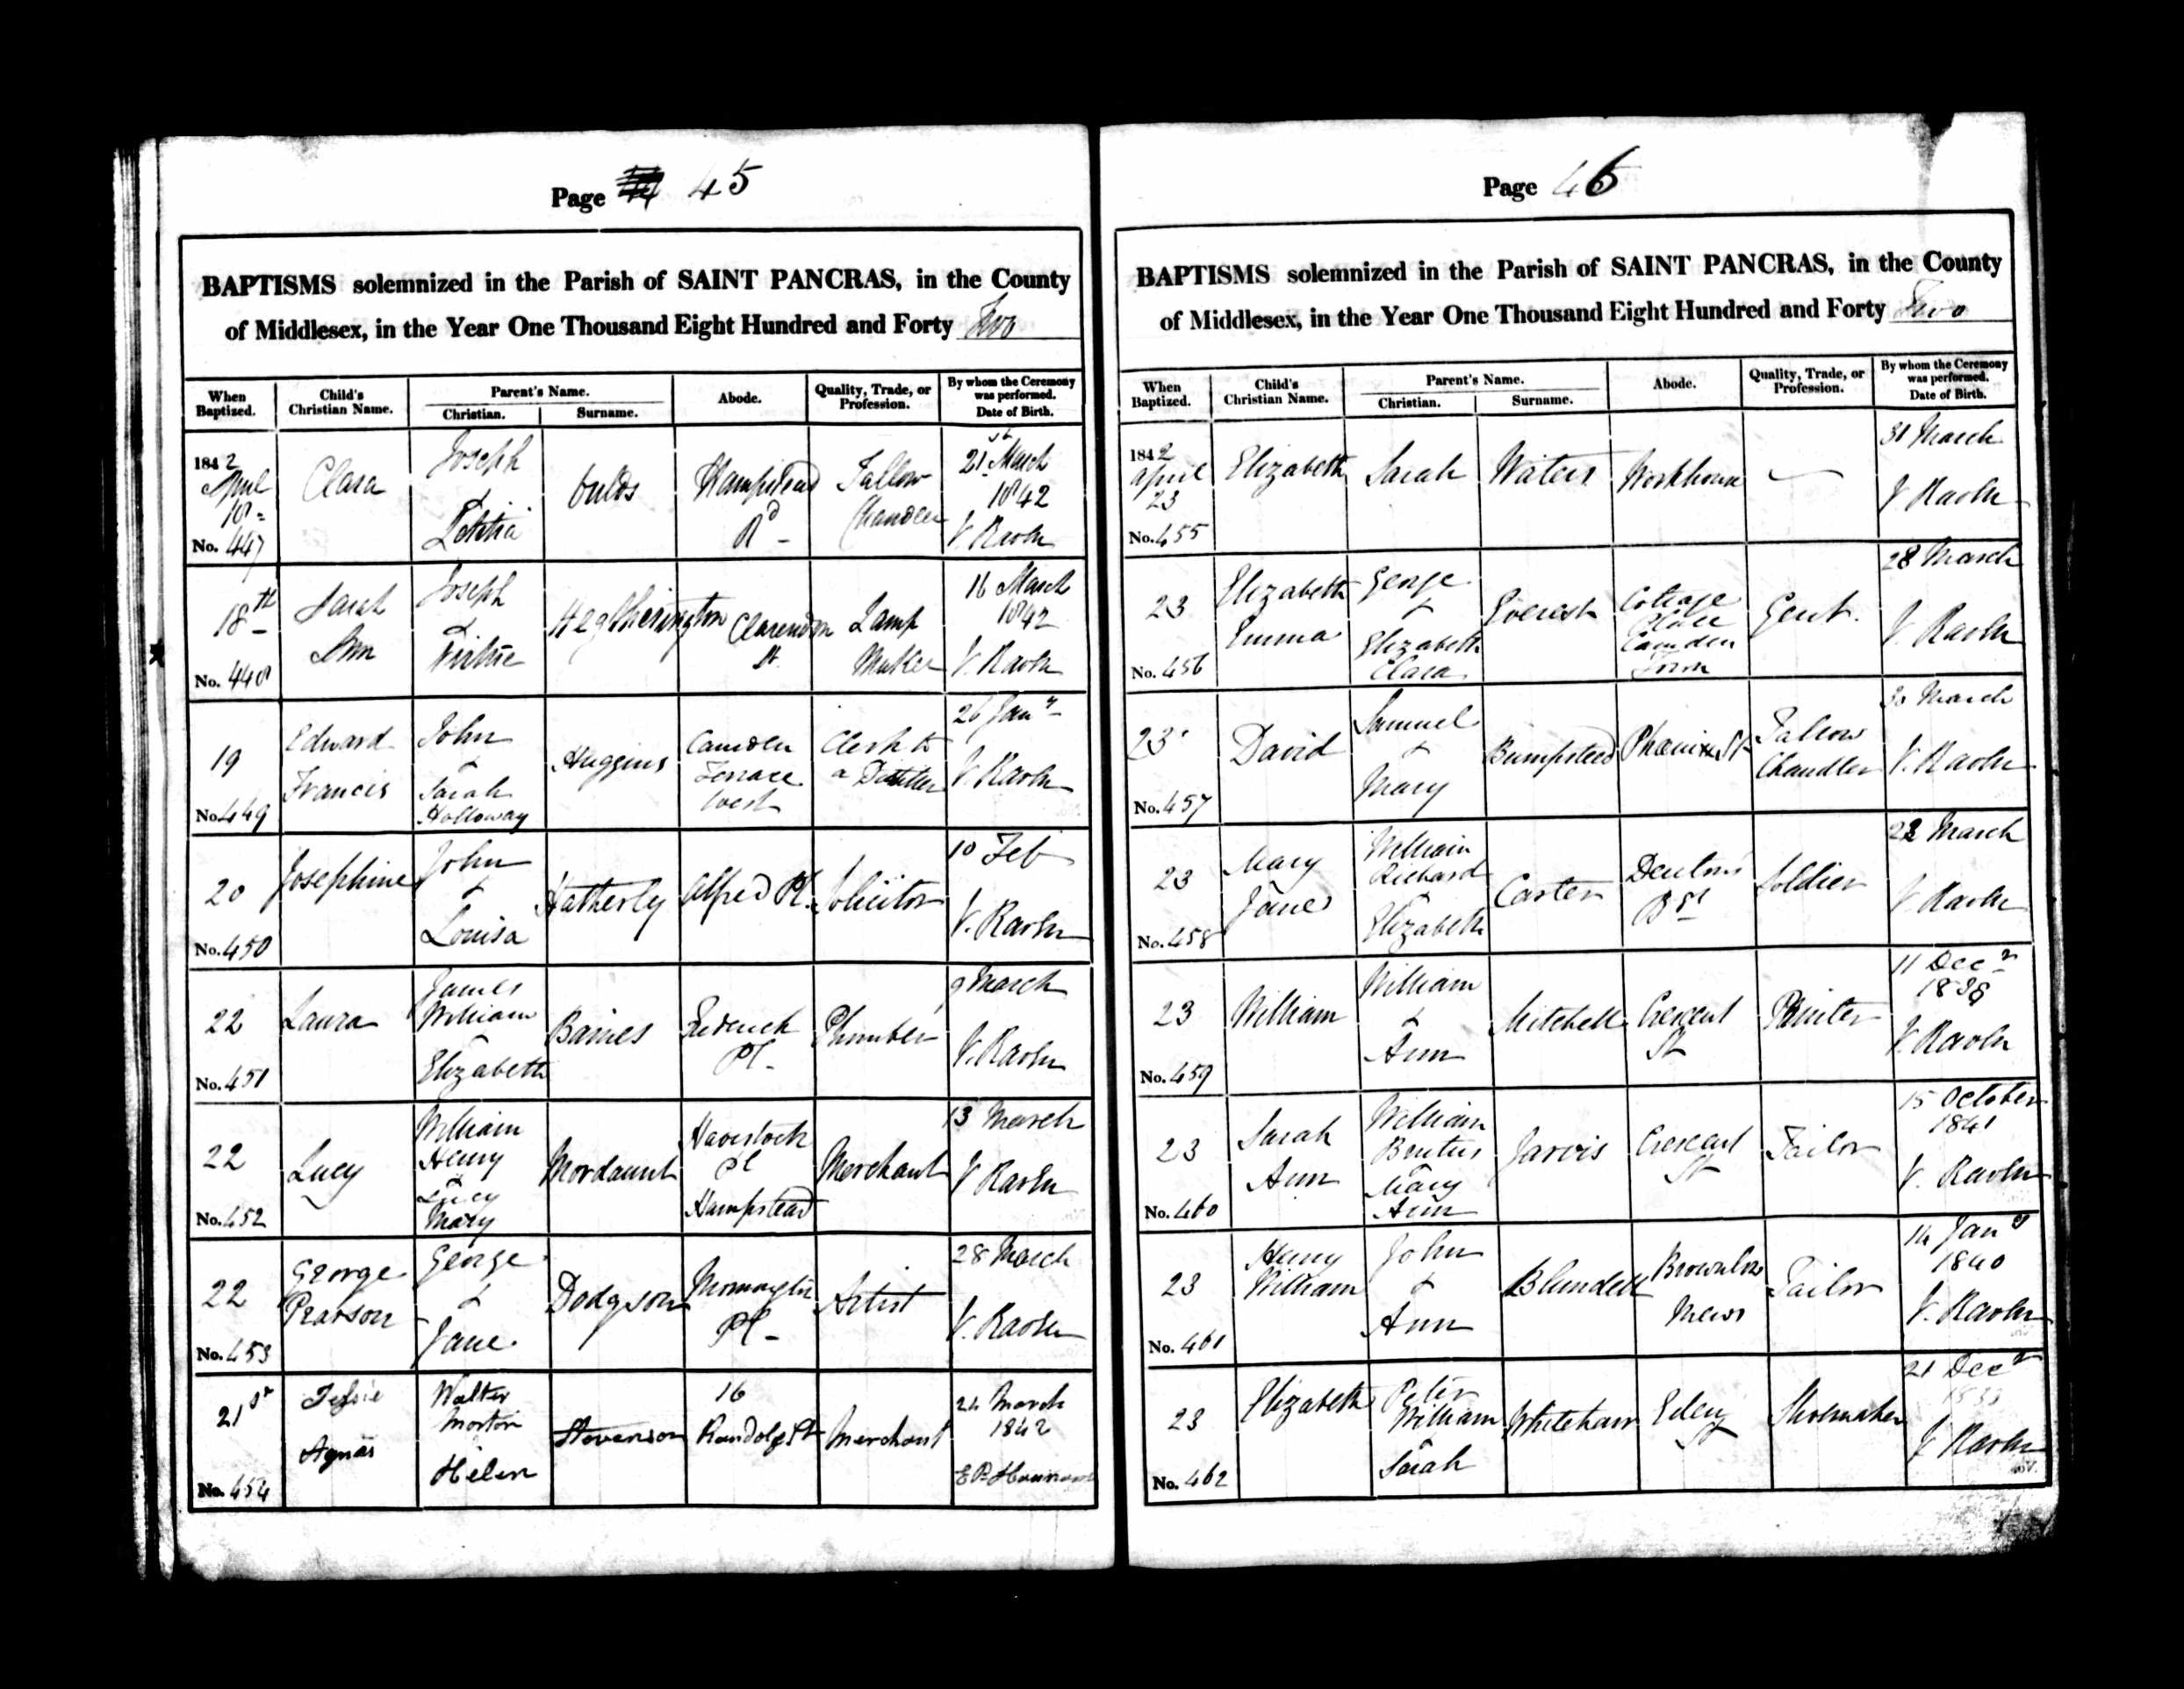 Page 45
BAPTISMS solemnized in the Parish of SAINT PANCRAS, in the County
of Middlesex, in the Year One Thousand Eight Hundred and Forty Two
When Baptized.
Child's Christian Name.
Parent's Name.
Christian.
Surname.
Abode.
Quality, Trade, or Profession.
By whom the Ceremony was performed.
Date of Birth.
1842 April 18 No. 447
Clara
Joseph & Letitia
Hampstead Rd
Tallow Chandler
21st March 1842
18th No. 448
Sarah Ann
Joseph & Virtue
Hetherington
Clarendon St
Lamp Maker
16 March 1842
19 No. 449
Edward Francis
John & Sarah Holloway
Huggins
Camden Terrace West
Clerk to a Distiller
26 Jany
20 No. 450
Josephine
John & Louisa
Hatherly
Alfred Pl.
Solicitor
10 Feb
22 No. 451
Laura
James William Elizabeth
Baines
Frederick Pl
Plumber
9 March
22 No. 452
Lucy
William Henry & Lucy Mary
Mordaunt
Haverstock Pl Hampstead
Merchant
13 March
22 No. 453
George Pearson
George & Jane
Dodgson
Mornington Pl
Artist
28 March
21st No. 454
Jessie Agnes
Walter Morton Helen
Stevenson
16 Randolph St
Merchant
24 March 1842
Page 46
BAPTISMS solemnized in the Parish of SAINT PANCRAS, in the County
of Middlesex, in the Year One Thousand Eight Hundred and Forty Two
When Baptized.
Child's Christian Name.
Parent's Name.
Christian.
Surname.
Abode.
Quality, Trade, or Profession.
By whom the Ceremony was performed.
Date of Birth.
1842 April 23 No. 455
Elizabeth
Sarah
Waters
Workhouse
31 March
23 No. 456
Elizabeth Emma
George & Elizabeth Clara
Everest
Cottage Place Camden Town
Gent.
28 March
23 No. 457
David
Samuel & Mary
Bumpsteed
Phoenix St
Tallow Chandler
30 March
23 No. 458
Mary Jane
William Richard Elizabeth
Carter
Soldier
22 March
23 No. 459
William
William & Ann
Mitchell
Crescent St
11 Decr
23 No. 460
Sarah Ann
William Mary Ann
Jarvis
Crescent St
Tailor
15 October 1841
23 No. 461
Henry William
John & Ann
Blundell
Brownlow Mews
Tailor
14 Jany 1840
23 No. 462
Elizabeth
Peter William Sarah
Shoemaker
21 Decr